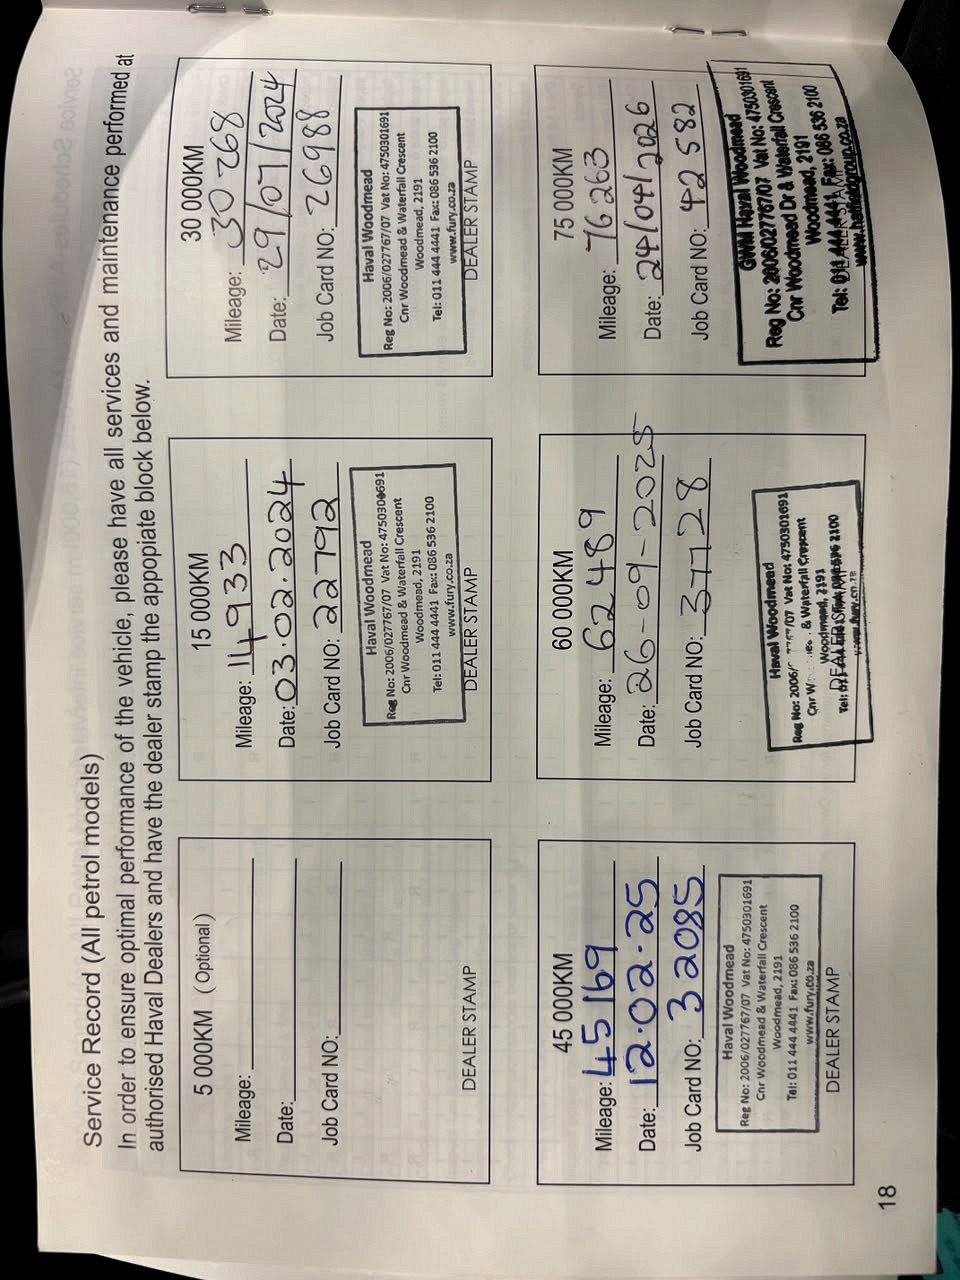 Service Record (All petrol models)
In order to ensure optimal performance of the vehicle, please have all services and maintenance performed at
authorised Haval Dealers and have the dealer stamp the appopiate block below.
5 000KM (Optional)
Mileage:
Date:
Job Card NO:
DEALER STAMP
15 000KM
Mileage: 14933
Date: 03.02.2024
Job Card NO: 22792
Haval Woodmead
Reg No: 2006/027767/07 Vat No: 4750301691
Cnr Woodmead & Waterfall Crescent
Woodmead, 2191
Tel: 011 444 4441 Fax: 086 536 2100
www.fury.co.za
DEALER STAMP
30 000KM
Mileage: 30268
Date: 29/07/2024
Job Card NO: 26988
Haval Woodmead
Reg No: 2006/027767/07 Vat No: 4750301691
Cnr Woodmead & Waterfall Crescent
Woodmead, 2191
Tel: 011 444 4441 Fax: 086 536 2100
www.fury.co.za
DEALER STAMP
45 000KM
Mileage: 45169
Date: 12.02.25
Job Card NO: 32085
Haval Woodmead
Reg No: 2006/027767/07 Vat No: 4750301691
Cnr Woodmead & Waterfall Crescent
Woodmead, 2191
Tel: 011 444 4441 Fax: 086 536 2100
www.fury.co.za
DEALER STAMP
60 000KM
Mileage: 62489
Date: 26-09-2025
Job Card NO: 37728
Haval Woodmead
Reg No: 2006/ /07 Vat No: 4750301691
Cnr & Waterfall Crescent
Woodmead, 2191
Tel: 2100
www.fury.co.za
DEALER STAMP
75 000KM
Mileage: 76263
Date: 24/04/2026
Job Card NO: 42582
GWM Haval Woodmead
Reg No: 2006/027767/07 Vat No: 4750301691
Cnr Woodmead Dr & Waterfall Crescent
Woodmead, 2191
Tel: 011 444 4441 Fax: 086 536 2100
DEALER STAMP
18